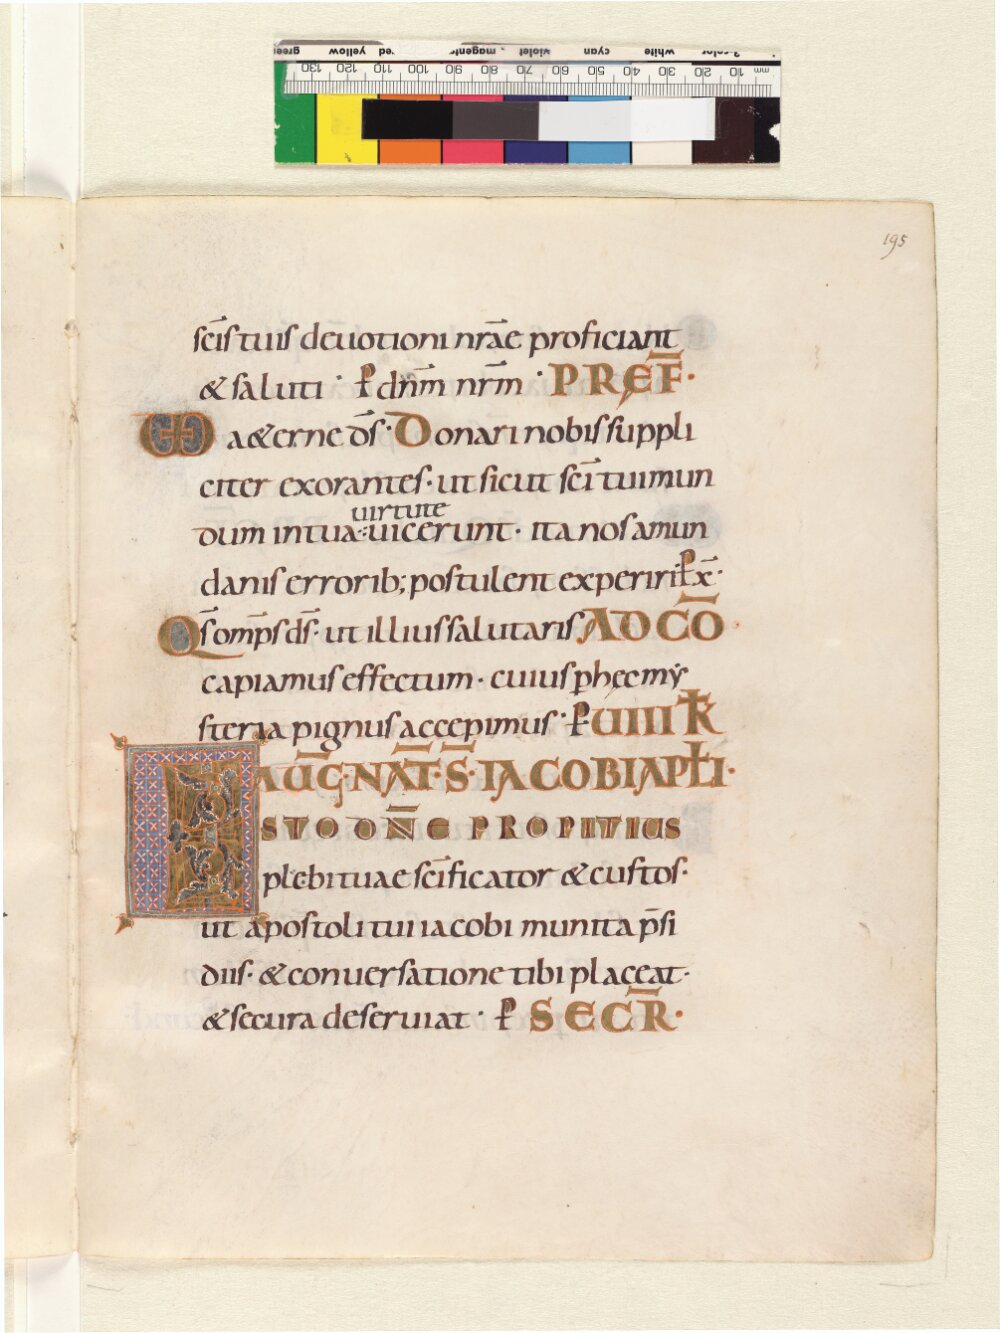 green yellow red magenta violet cyan white 3-color
130 120 110 100 90 80 70 60 50 40 30 20 10 mm
195
sc̄is tuis deuotioni nr̄ae proficiant
& saluti · ꝑ dn̄m nr̄m · PREF̄·
VD a&erne d̄s· Donari nobis suppli
citer exorantes· ut sicut sc̄i tui mun
uirtute
dum in tua uicerunt· ita nos amun
danis errorib; postulent experiri ꝑ x̄·
Qs̄ omp̄s d̄s· ut illius salutaris AD CŌ
capiamus effectum· cuius p hęc mẏ
steria pignus accepimus · ꝑ VIII K̄
AŪG·NAT̄·S̄·IACOBI APŁI·
ESTO DN̄E PROPITIUS
plebi tuae sc̄ificator & custos·
ut apostoli tui iacobi munita p̄si
diis· & conuersatione tibi placeat·
& secura deseruiat · ꝑ SECR̄·